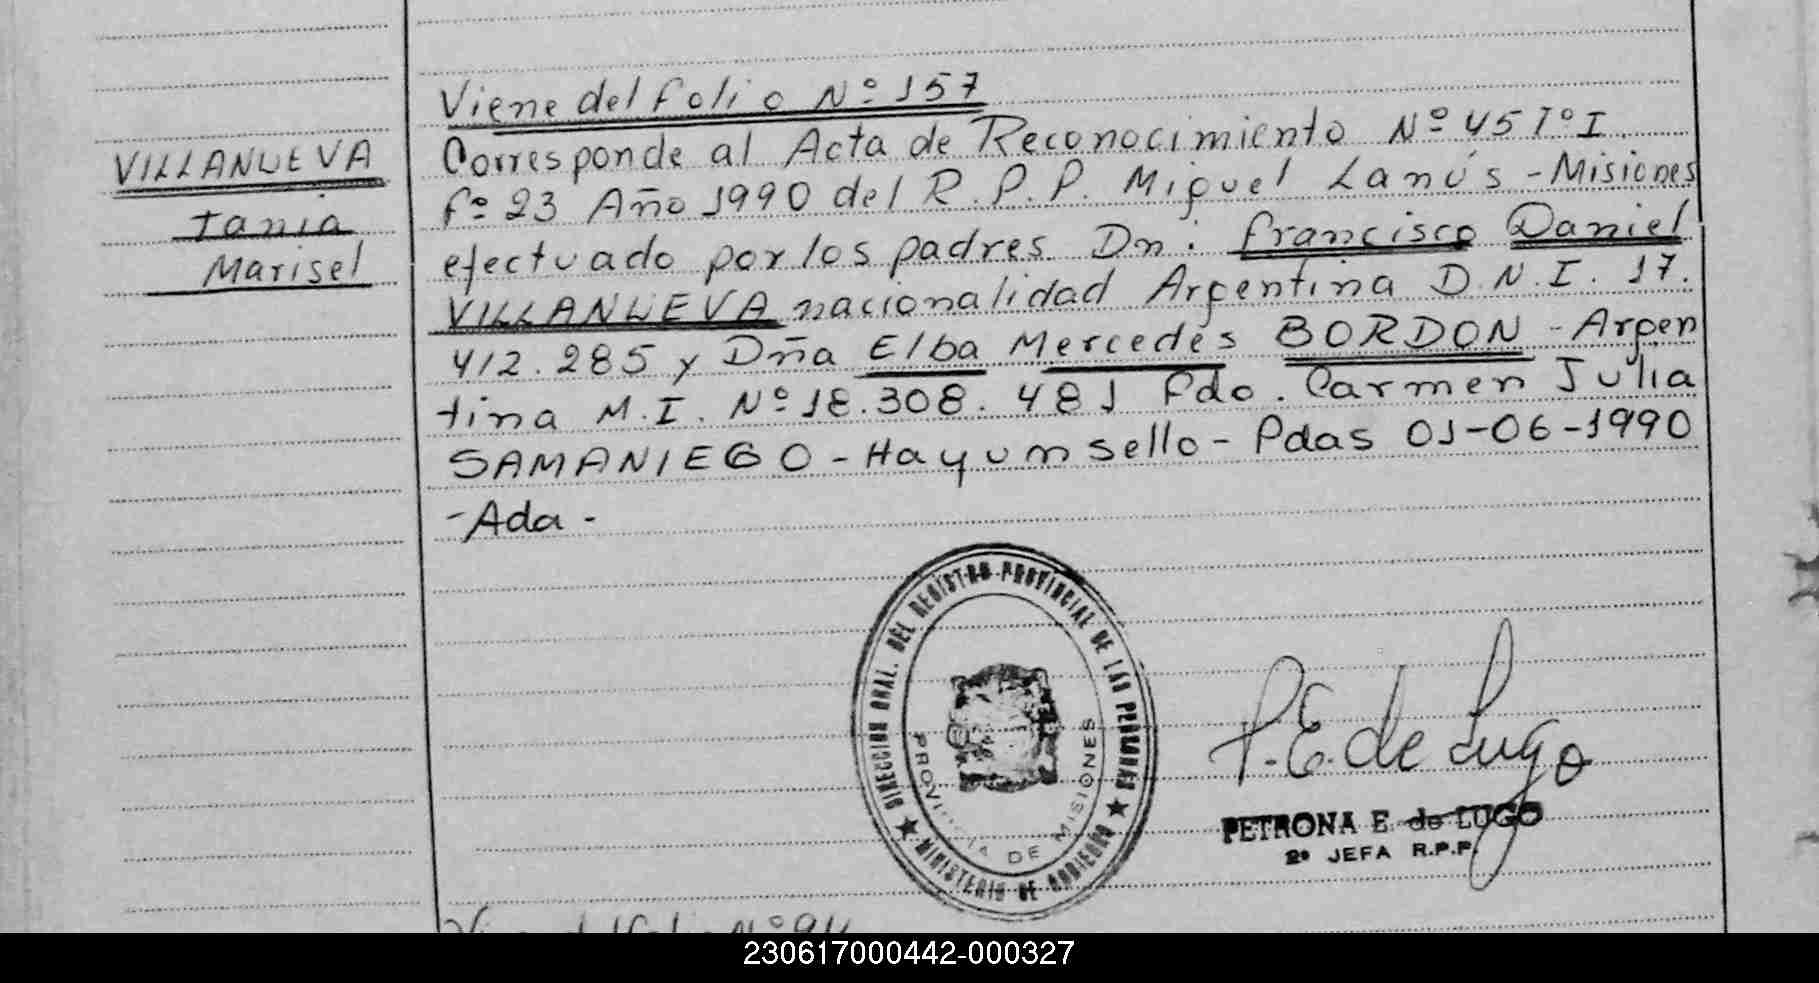 Viene del folio Nº 157
VILLANUEVA
Tania
Marisel
Corresponde al Acta de Reconocimiento Nº 45 Tº I
fº 23 Año 1990 del R.P.P. Miguel Lanús - Misiones
efectuado por los padres Dn: francisco Daniel
VILLANUEVA nacionalidad Argentina D.N.I. 17.
412.285 y Dña Elba Mercedes BORDON - Argen
tina M.I. Nº 18.308.481 fdo. Carmen Julia
SAMANIEGO - Hay un sello - Pdas 01-06-1990
- Ada -
DIRECCION GRAL. DEL REGISTRO PROVINCIAL DE LAS PERSONAS
MINISTERIO DE GOBIERNO
PROVINCIA DE MISIONES
P. E. de Lugo
PETRONA E de LUGO
2º JEFA R.P.P.
230617000442-000327